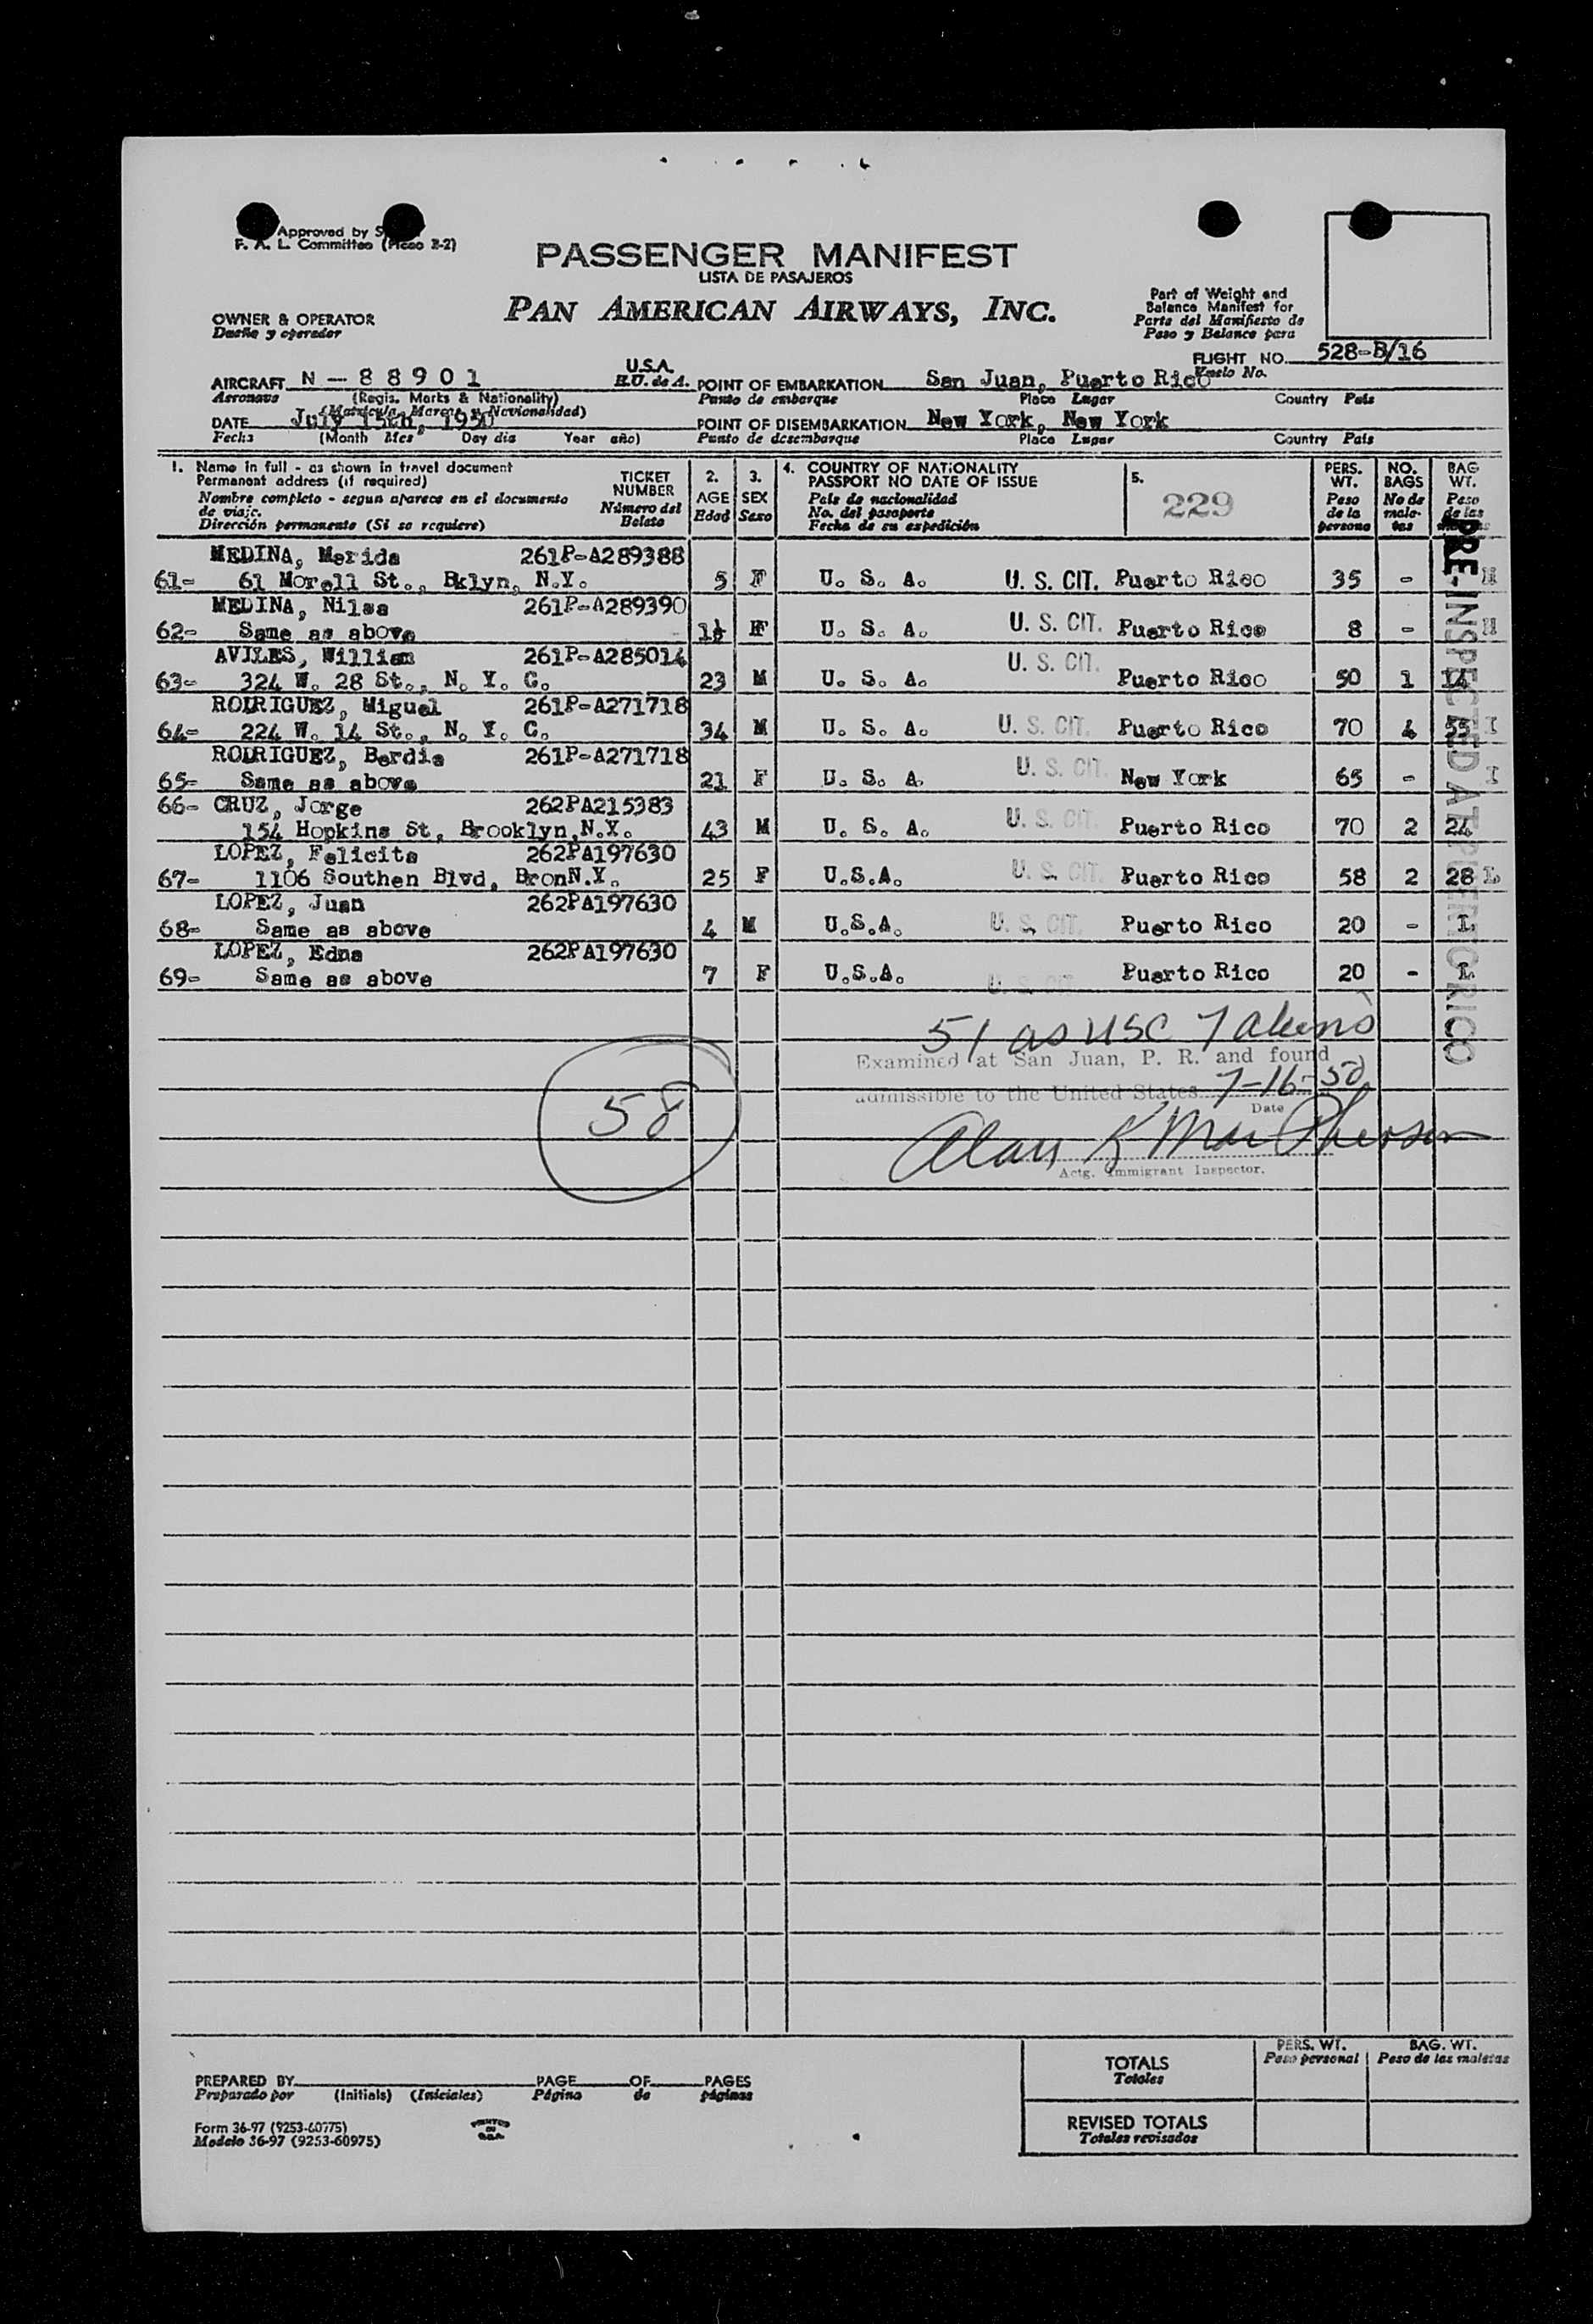 Approved by S
F. A. L. Committee (Picao 2-2)
PASSENGER MANIFEST
LISTA DE PASAJEROS
PAN AMERICAN AIRWAYS, INC.
Part of Weight and
Balance Manifest for
Parte del Manifiesto de
Peso y Balance para
OWNER & OPERATOR
Dueño y operador
FLIGHT NO. 528-B/16
Vuelo No.
AIRCRAFT N - 8 8 9 0 1 U.S.A.
Aeronave (Regis. Marks & Nationality) E.U. de A.
(Matrícula, Marcas y Nacionalidad)
POINT OF EMBARKATION San Juan, Puerto Rico
Punto de embarque Place Lugar Country País
DATE July 15th, 1950
Fecha (Month Mes Day día Year año)
POINT OF DISEMBARKATION New York, New York
Punto de desembarque Place Lugar Country País
1. Name in full - as shown in travel document
Permanent address (if required)
Nombre completo - segun aparece en el documento
de viaje.
Dirección permanente (Si se requiere)
TICKET
NUMBER
Número del
Boleto
2.
AGE
Edad
3.
SEX
Sexo
4. COUNTRY OF NATIONALITY
PASSPORT NO DATE OF ISSUE
País de nacionalidad
No. del pasaporte
Fecha de su expedición
5.
229
PERS.
WT.
Peso
de la
persona
NO.
BAGS
No de
male-
tas
BAG
WT.
Peso
de las
MEDINA, Merida 261P-A289388
61- 61 Morell St., Bklyn, N.Y. 5 F U. S. A. U. S. CIT. Puerto Rico 35 - H
MEDINA, Nilsa 261P-A289390
62- Same as above F U. S. A. U. S. CIT. Puerto Rico 8 - H
AVILES, William 261P-A285014
63- 324 W. 28 St., N. Y. C. 23 M U. S. A. U. S. CIT. Puerto Rico 50 1 14
RODRIGUEZ, Miguel 261P-A271718
64- 224 W. 14 St., N. Y. C. 34 M U. S. A. U. S. CIT. Puerto Rico 70 4 53 I
RODRIGUEZ, Berdie 261P-A271718
65- Same as above 21 F U. S. A. U. S. CIT. New York 65 - I
66- CRUZ, Jorge 262PA215383
154 Hopkins St, Brooklyn,N.Y. 43 M U. S. A. U. S. CIT. Puerto Rico 70 2 24
LOPEZ, Felicita 262PA197630
67- 1106 Southen Blvd, BronN.Y. 25 F U.S.A. U. S. CIT. Puerto Rico 58 2 28 L
LOPEZ, Juan 262PA197630
68- Same as above 4 M U.S.A. U. S. CIT. Puerto Rico 20 - L
LOPEZ, Edna 262PA197630
69- Same as above 7 F U.S.A. U. S. CIT. Puerto Rico 20 - L
PRE-INSPECTED AT PUERTO RICO
51 as USC 7 aliens
Examined at San Juan, P. R. and found
admissible to the United States 7-16-50
Date
58
Alan K MacPherson
Actg. Immigrant Inspector.
PERS. WT. BAG. WT.
Peso personal Peso de las maletas
TOTALS
Totales
REVISED TOTALS
Totales revisados
PREPARED BY PAGE OF PAGES
Preparado por (Initials) (Iniciales) Página de páginas
Form 36-97 (9253-60975)
Modelo 36-97 (9253-60975)
PRINTED
IN
U.S.A.